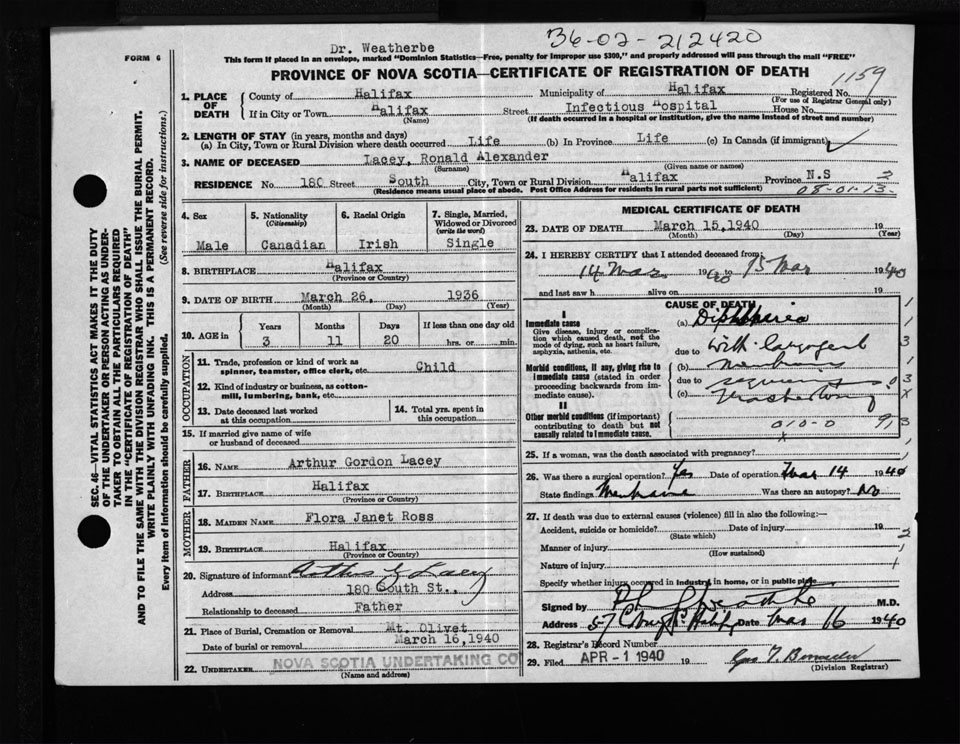 36-02-212420
Dr. Weatherbe
FORM 6
This form if placed in an envelope, marked "Dominion Statistics—Free, penalty for improper use $300," and properly addressed will pass through the mail "FREE"
PROVINCE OF NOVA SCOTIA—CERTIFICATE OF REGISTRATION OF DEATH
1159
1. PLACE OF DEATH
County of Halifax Municipality of Halifax Registered No.
(For use of Registrar General only)
If in City or Town Halifax Street Infectious Hospital House No.
(Name) (If death occurred in a hospital or institution, give the name instead of street and number)
2. LENGTH OF STAY (in years, months and days)
(a) In City, Town or Rural Division where death occurred Life (b) In Province Life (c) In Canada (if immigrant)
3. NAME OF DECEASED Lacey, Ronald Alexander
(Surname) (Given name or names)
RESIDENCE No. 180 Street South City, Town or Rural Division Halifax Province N.S
(Residence means usual place of abode. Post Office Address for residents in rural parts not sufficient)
08-01-13-
4. Sex
Male
5. Nationality
(Citizenship)
Canadian
6. Racial Origin
Irish
7. Single, Married, Widowed or Divorced
(write the word)
Single
8. BIRTHPLACE Halifax
(Province or Country)
9. DATE OF BIRTH March 26, 1936
(Month) (Day) (Year)
10. AGE in
Years Months Days If less than one day old
3 11 20 hrs. or min.
OCCUPATION
11. Trade, profession or kind of work as
spinner, teamster, office clerk, etc. Child
12. Kind of industry or business, as cotton-
mill, lumbering, bank, etc.
13. Date deceased last worked
at this occupation
14. Total yrs. spent in
this occupation
15. If married give name of wife
or husband of deceased
FATHER
16. NAME Arthur Gordon Lacey
17. BIRTHPLACE Halifax
(Province or Country)
MOTHER
18. MAIDEN NAME Flora Janet Ross
19. BIRTHPLACE Halifax
(Province or Country)
20. Signature of informant Arthur G Lacey
Address 180 South St.,
Relationship to deceased Father
21. Place of Burial, Cremation or Removal Mt. Olivet
Date of burial or removal March 16, 1940
22. UNDERTAKER NOVA SCOTIA UNDERTAKING CO
(Name and address)
MEDICAL CERTIFICATE OF DEATH
23. DATE OF DEATH March 15, 1940
(Month) (Day) (Year)
24. I HEREBY CERTIFY that I attended deceased from
14 Mar 1940 to 15 Mar 1940
and last saw h alive on 19
CAUSE OF DEATH
I
Immediate cause
Give disease, injury or complica-
tion which caused death, not the
mode of dying, such as heart failure,
asphyxia, asthenia, etc.
(a) Diphtheria
due to with laryngeal
Morbid conditions, if any, giving rise to
immediate cause (stated in order
proceeding backwards from im-
mediate cause).
(b)
due to
(c)
II
Other morbid conditions (if important)
contributing to death but not
causally related to immediate cause.
010-0
25. If a woman, was the death associated with pregnancy?
26. Was there a surgical operation? Yes Date of operation Mar 14 1940
State findings Membrane Was there an autopsy? No
27. If death was due to external causes (violence) fill in also the following:—
Accident, suicide or homicide? Date of injury 19
(State which)
Manner of injury
(How sustained)
Nature of injury
Specify whether injury occurred in industry, in home, or in public place
Signed by M.D.
Address Date Mar 16 1940
28. Registrar's Record Number
29. Filed APR - 1 1940 19
(Division Registrar)
SEC. 46—VITAL STATISTICS ACT MAKES IT THE DUTY
OF THE UNDERTAKER OR PERSON ACTING AS UNDER-
TAKER TO OBTAIN ALL THE PARTICULARS REQUIRED
IN THE "CERTIFICATE OF REGISTRATION OF DEATH"
AND TO FILE THE SAME WITH THE DIVISION REGISTRAR WHO SHALL ISSUE THE BURIAL PERMIT.
WRITE PLAINLY WITH UNFADING INK. THIS IS A PERMANENT RECORD.
Every item of information should be carefully supplied. (See reverse side for instructions.)